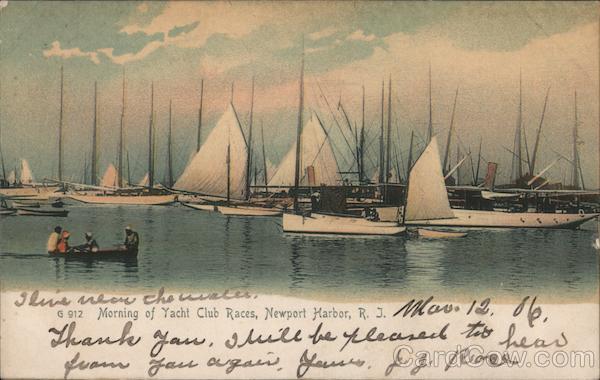 I live near the water.
G 912 Morning of Yacht Club Races, Newport Harbor, R. I. Mar. 12. 06.
Thank You, I will be pleased to hear
from you again, Yours,
CardCow.com